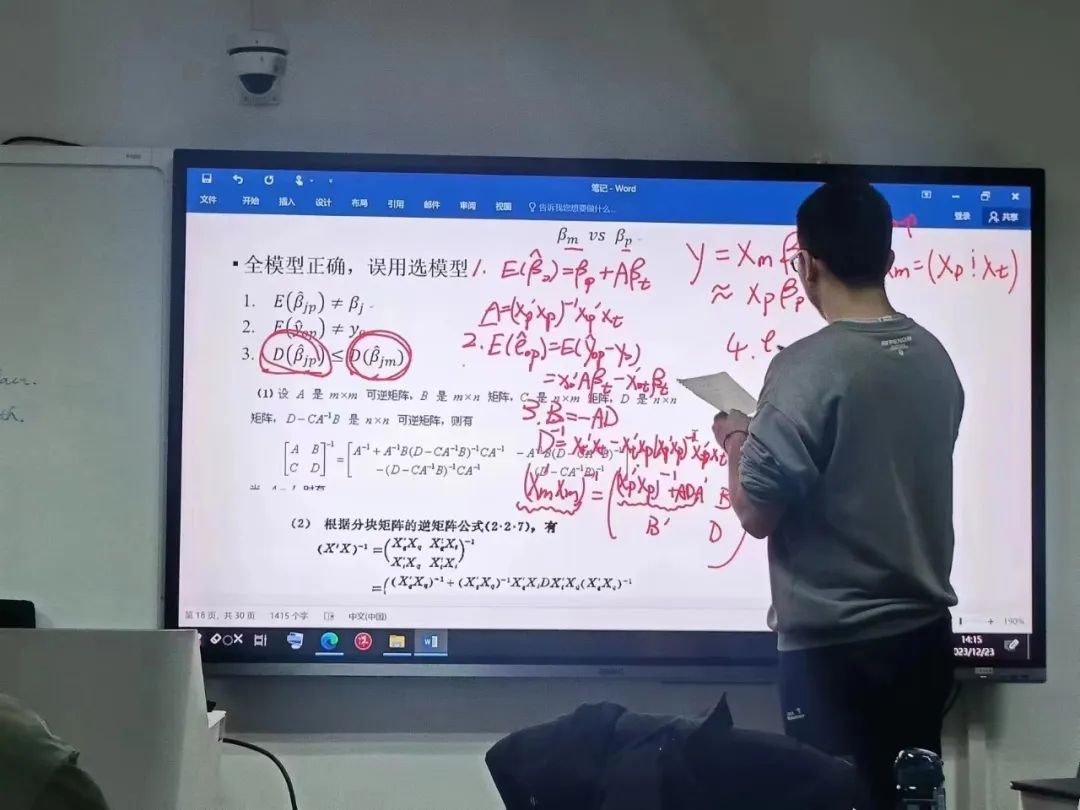 笔记 - Word
文件 开始 插入 设计 布局 引用 邮件 审阅 视图 告诉我您想要做什么... 登录 共享
βm vs βp
▪全模型正确，误用选模型
1. E(β̂jp) ≠ βj
2. E(ŷop) ≠ yo
3. D(β̂jp) ≤ D(β̂jm)
(1) 设 A 是 m×m 可逆矩阵，B 是 m×n 矩阵，C 是 n×m 矩阵，D 是 n×n
矩阵，D−CA⁻¹B 是 n×n 可逆矩阵，则有
[A B; C D]⁻¹ = [A⁻¹+A⁻¹B(D−CA⁻¹B)⁻¹CA⁻¹ −A⁻¹B(D−CA⁻¹B)⁻¹
−(D−CA⁻¹B)⁻¹CA⁻¹ (D−CA⁻¹B)⁻¹]
(2) 根据分块矩阵的逆矩阵公式(2·2·7)，有
(X'X)⁻¹ = (X'qXq X'qXt
X'tXq X'tXt)⁻¹
= ((X'qXq)⁻¹+(X'qXq)⁻¹X'qXtDX'tXq(X'qXq)⁻¹
1. E(β̂2)=βp+Aβt
A=(Xp'Xp)⁻¹Xp'Xt
2. E(êop)=E(ŷop−yo)
=xop'Aβt−xot'βt
3. B=−AD
D⁻¹=Xt'Xt−Xt'Xp(Xp'Xp)⁻¹Xp'Xt
(Xm'Xm)⁻¹=((Xp'Xp)⁻¹+ADA' B
B' D)
y=Xmβ
≈Xpβp
Xm=(Xp⋮Xt)
4. e
第18页，共30页 1415个字 中文(中国) 190%
14:15
2023/12/23